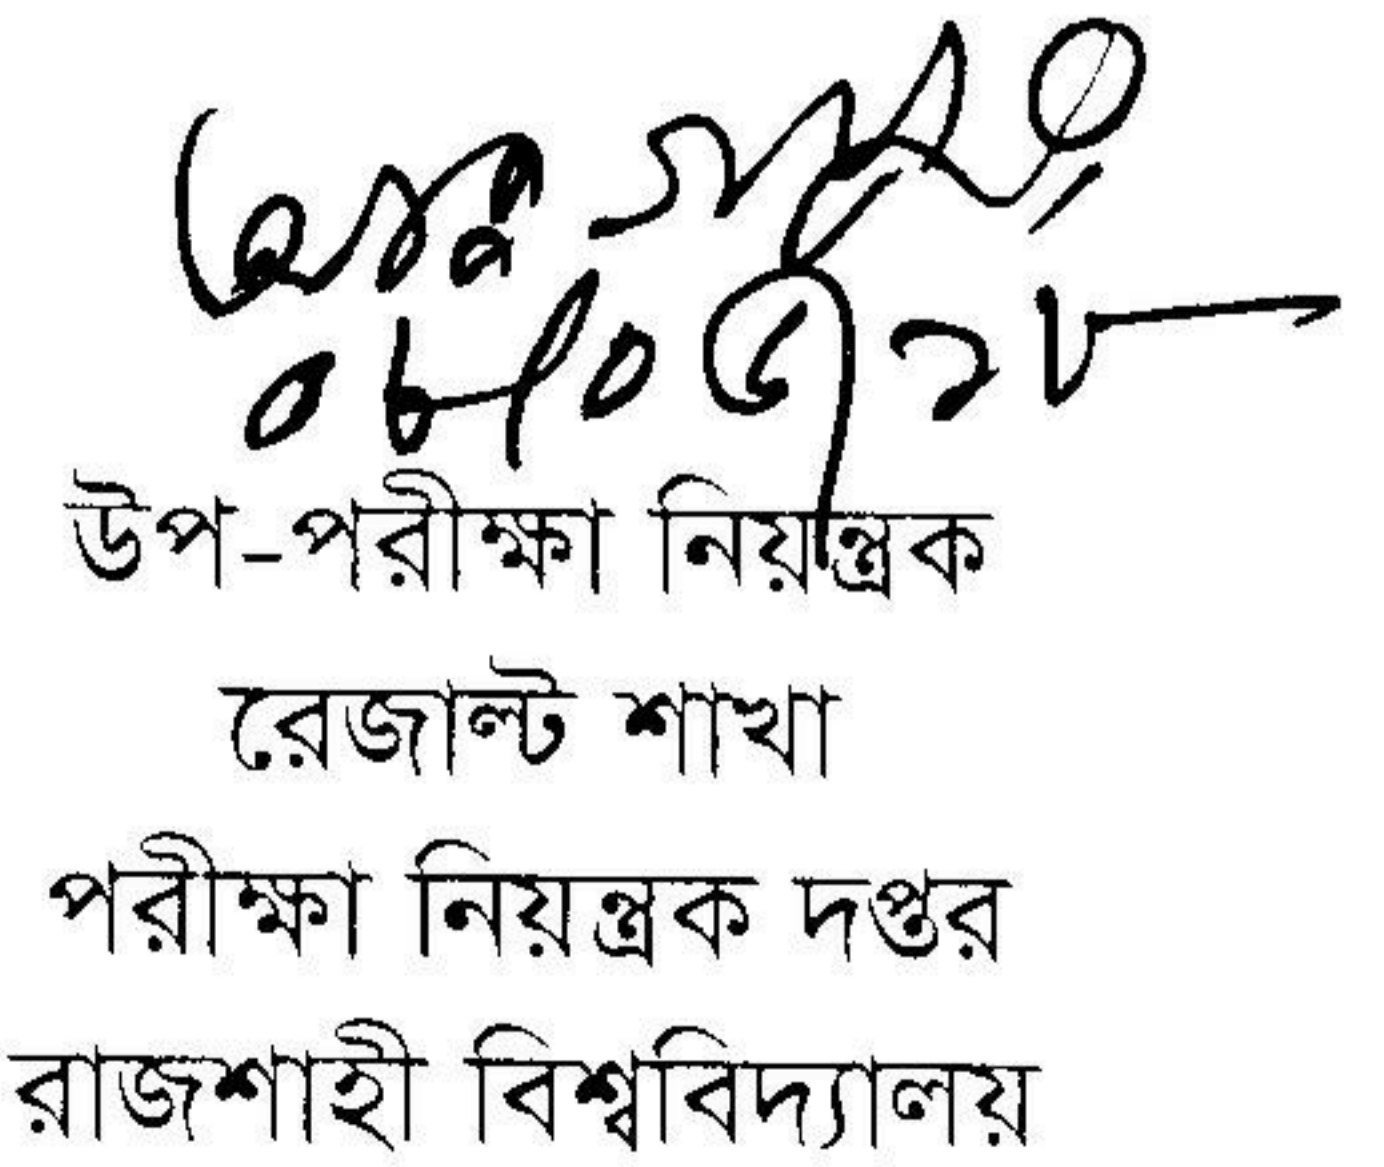 উপ-পরীক্ষা নিয়ন্ত্রক
রেজাল্ট শাখা
পরীক্ষা নিয়ন্ত্রক দপ্তর
রাজশাহী বিশ্ববিদ্যালয়